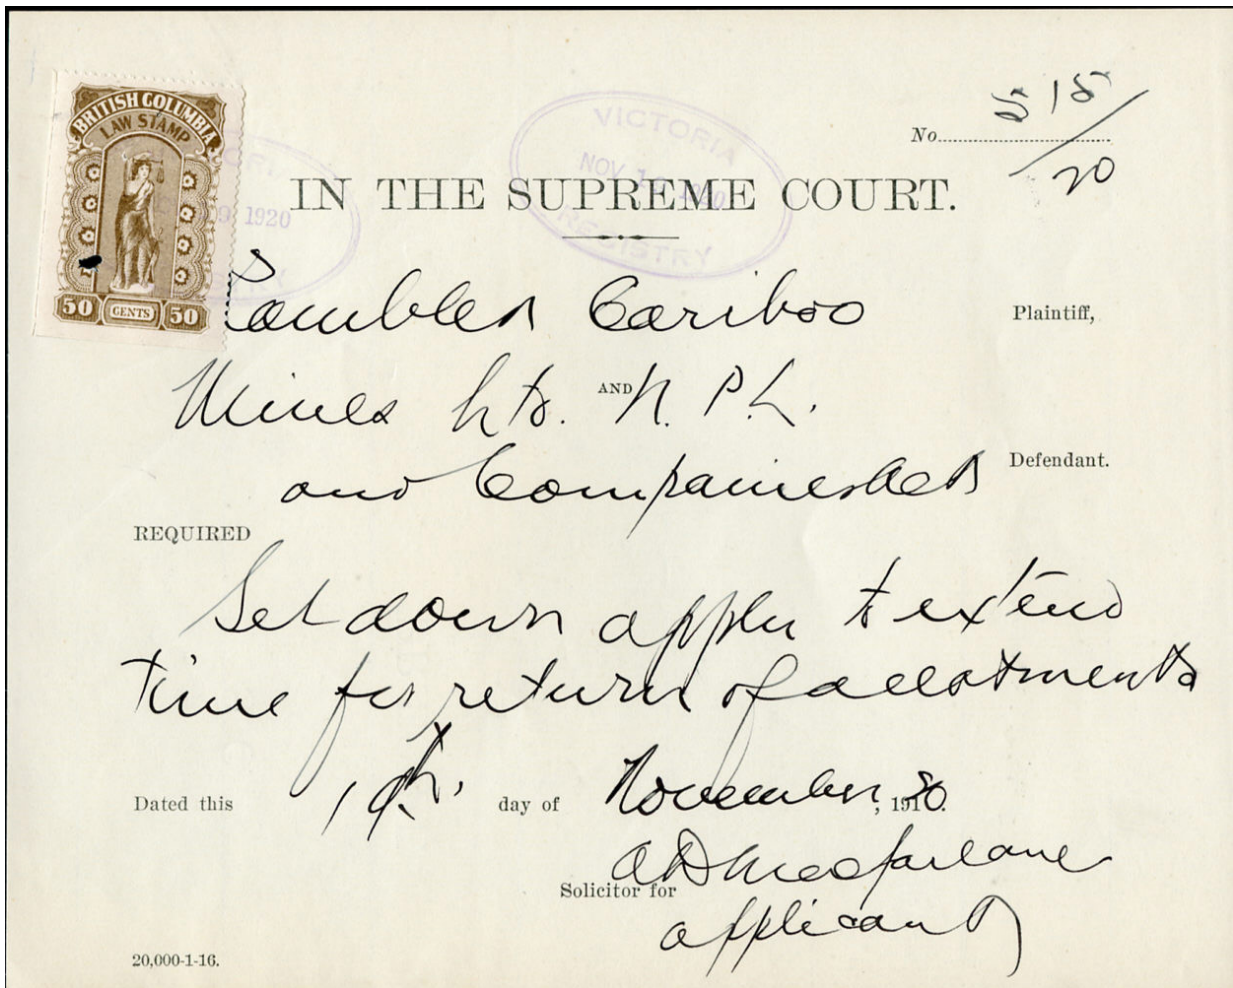 BRITISH COLUMBIA
LAW STAMP
50 CENTS 50
VICTORIA
NOV 19 1920
REGISTRY
No. 515/20
IN THE SUPREME COURT.
Rambler Cariboo
Plaintiff,
Mines Ltd. AND N.P.L.
and Companies Act
Defendant.
REQUIRED
Set down appln to extend
time for return of allotments
Dated this 19th. day of November, 1920.
Macfarlane
Solicitor for
applicant
20,000-1-16.